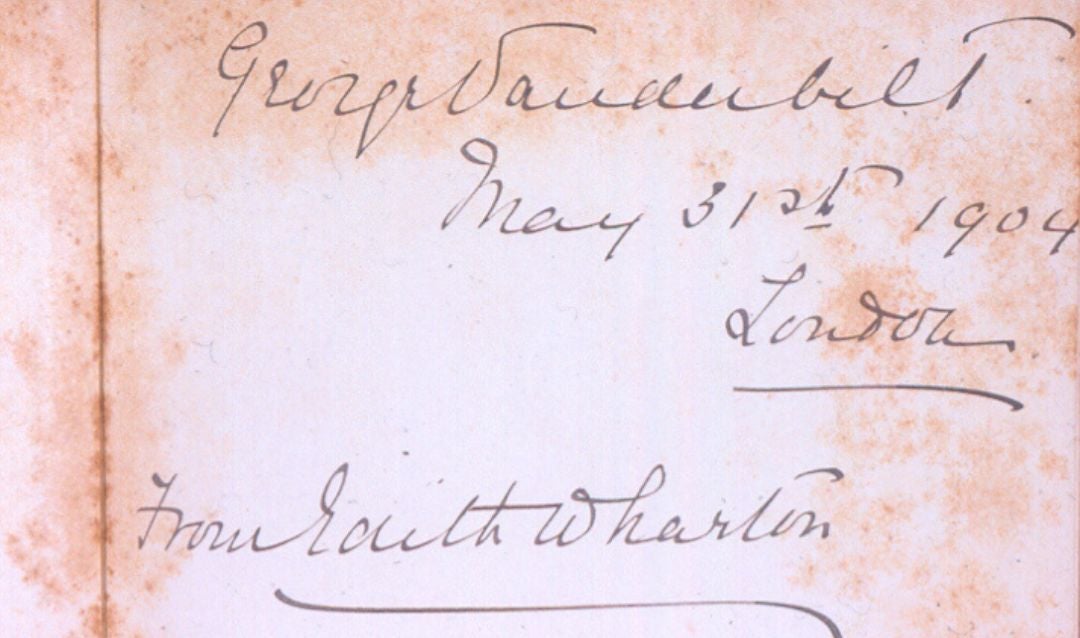 George Vanderbilt.
May 31st 1904
London.
From Edith Wharton